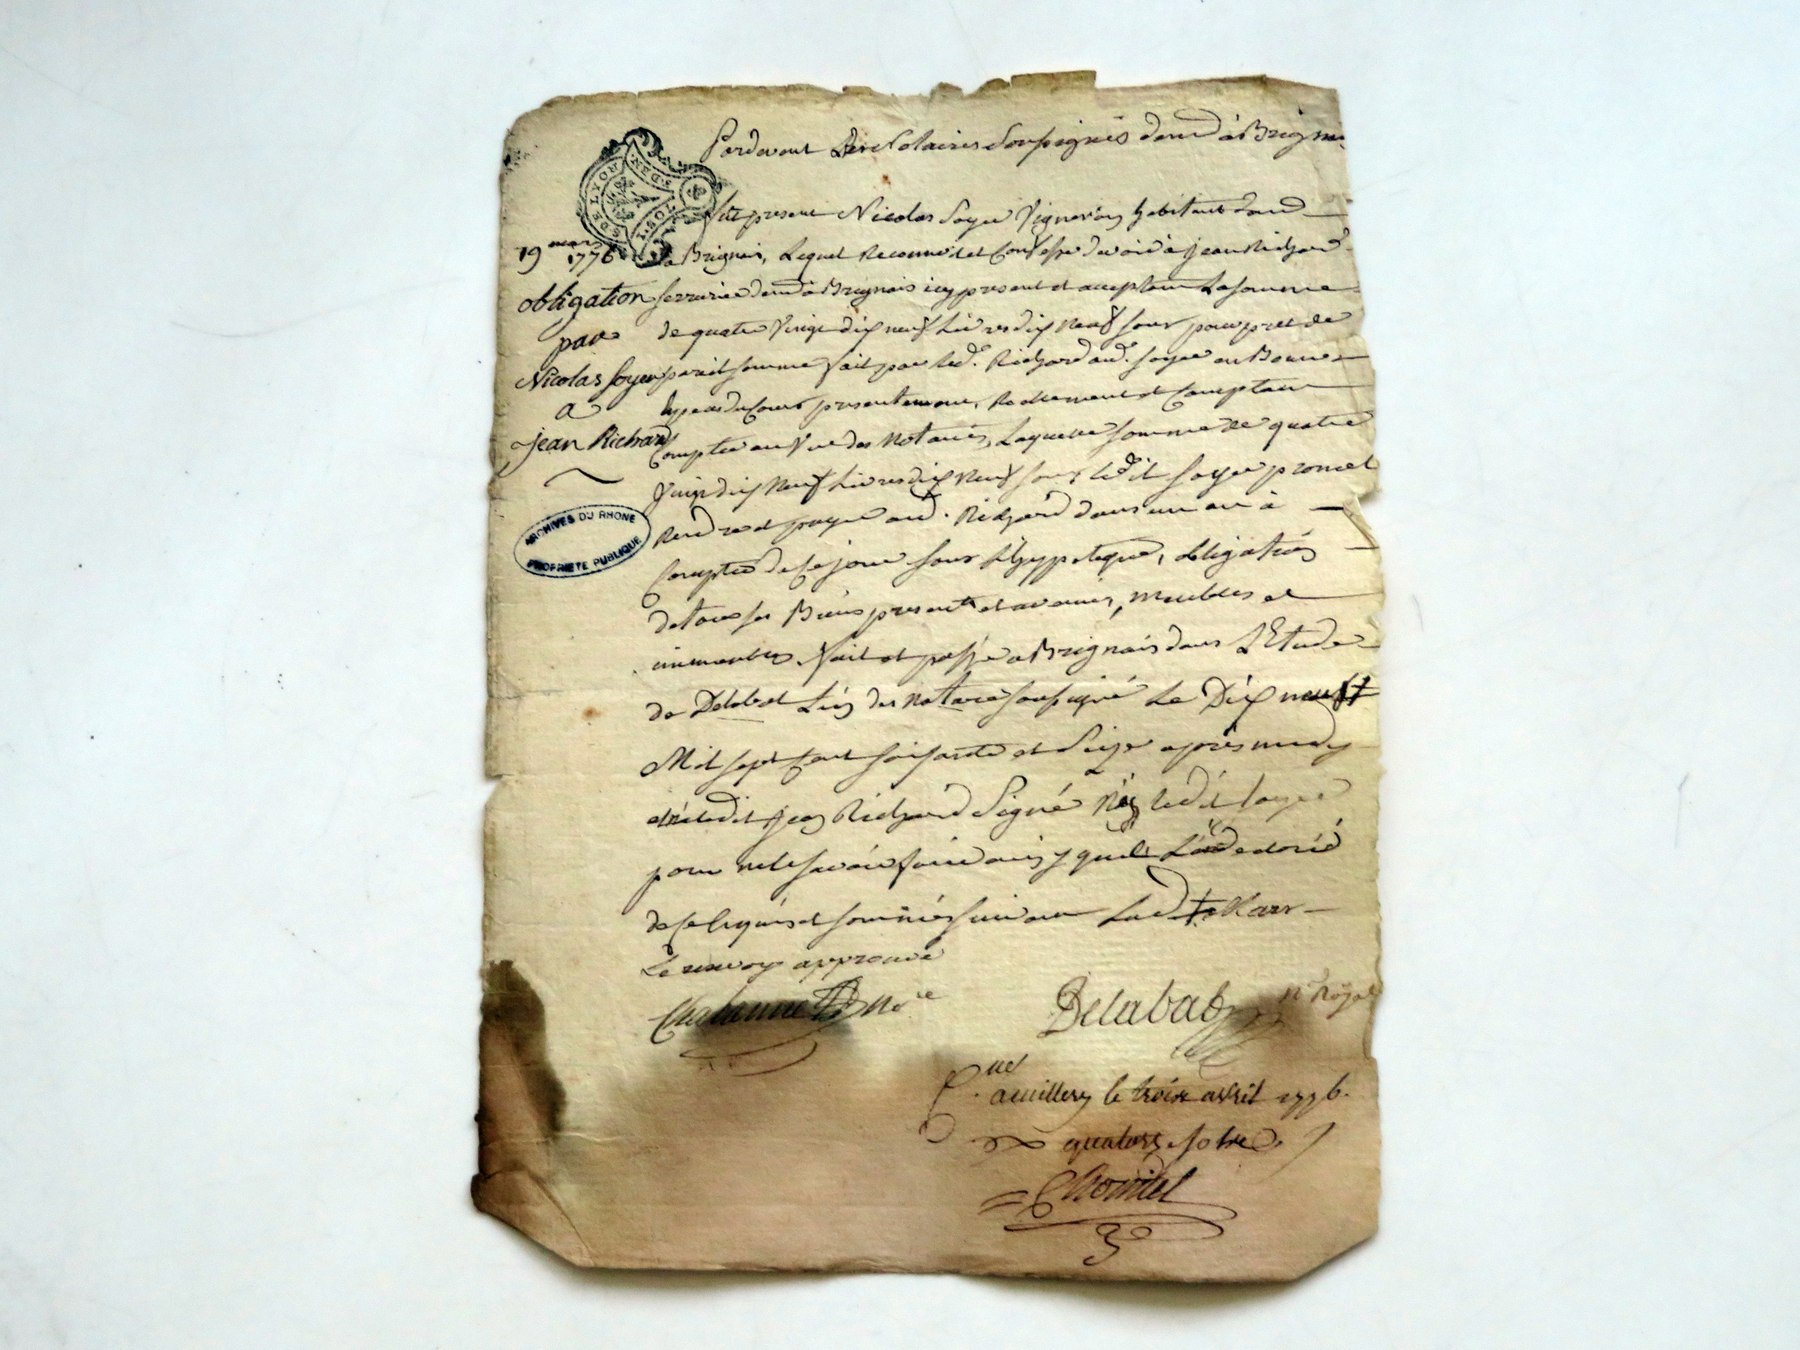 Pardevant Les Notaires Soussignés demt à Brignais
fut present Nicolas Soyer Vigneron habitant dud
19 mars 1776
a Brignais, Lequel Reconnoit et Confesse devoir à Jean Richard
obligation
serrurier demt à Brignais icy present et acceptant La somme
par
de quatre Vingt dix neuf Livres dix neuf sous pour pret de
Nicolas Soyer
pareil somme fait par led. Richard aud. Soyer en Bonne
a
Especes du Cours presentement, Reellement et Comptant
Jean Richard
Comptée au Vu des Notaires, Laquelle somme de quatre
Vingt dix Neuf Livres dix Neuf sous ledit Soyer promet
ARCHIVES DU RHONE
PROPRIETE PUBLIQUE
Rendre et payer aud. Richard dans un an à
Compter de Ce jour sous l'hyppoteque, obligation
de tous ses Biens presents et avenir, meubles et
immeubles. fait et passé a Brignais dans L'Etude
de Delabat L'un des Notaires soussigné Le Dix neuf
Mil sept Cent soixante et Seize après midy
et a ledit Jean Richard Signé Non ledit Soyer
pour ne le savoir faire ainsy qu'il L'a declaré
de ce Enquis et sommés suivant Lad. Mars
Le renvoy approuvé
Delabat n. Royal
a millery le trois avril 1776.
quatorze sols